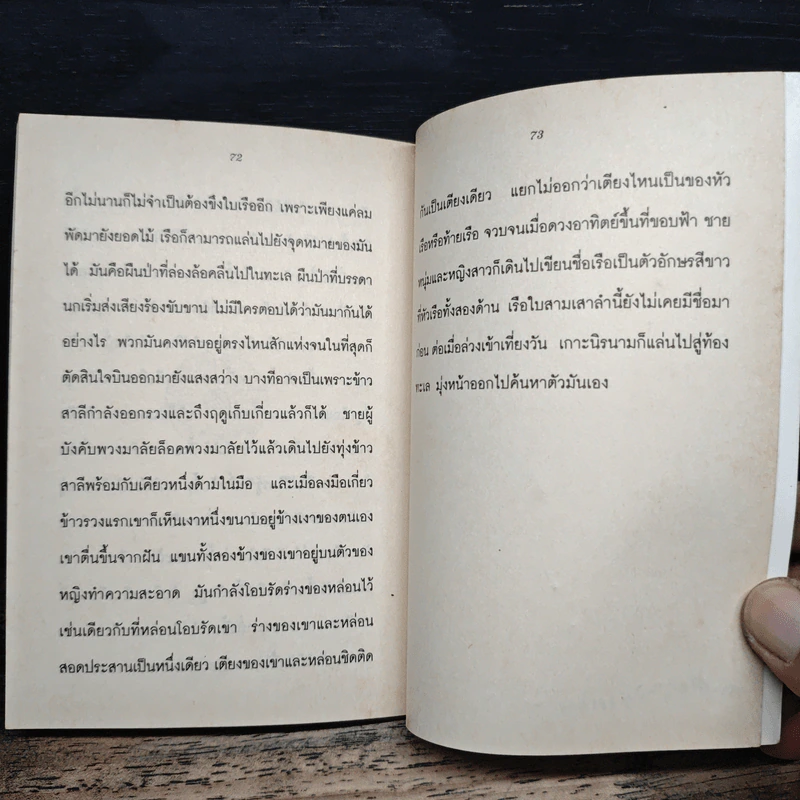 72
อีกไม่นานก็ไม่จำเป็นต้องขึงใบเรืออีก เพราะเพียงแค่ลม
พัดมายังยอดไม้ เรือก็สามารถแล่นไปยังจุดหมายของมัน
ได้ มันคือผืนป่าที่ล่องล้อคลื่นไปในทะเล ผืนป่าที่บรรดา
นกเริ่มส่งเสียงร้องขับขาน ไม่มีใครตอบได้ว่ามันมากันได้
อย่างไร พวกมันคงหลบอยู่ตรงไหนสักแห่งจนในที่สุดก็
ตัดสินใจบินออกมายังแสงสว่าง บางทีอาจเป็นเพราะข้าว
สาลีกำลังออกรวงและถึงฤดูเก็บเกี่ยวแล้วก็ได้ ชายผู้
บังคับพวงมาลัยล็อคพวงมาลัยไว้แล้วเดินไปยังทุ่งข้าว
สาลีพร้อมกับเคียวหนึ่งด้ามในมือ และเมื่อลงมือเกี่ยว
ข้าวรวงแรกเขาก็เห็นเงาหนึ่งขนาบอยู่ข้างเงาของตนเอง
เขาตื่นขึ้นจากฝัน แขนทั้งสองข้างของเขาอยู่บนตัวของ
หญิงทำความสะอาด มันกำลังโอบรัดร่างของหล่อนไว้
เช่นเดียวกับที่หล่อนโอบรัดเขา ร่างของเขาและหล่อน
สอดประสานเป็นหนึ่งเดียว เตียงของเขาและหล่อนชิดติด
73
กันเป็นเตียงเดียว แยกไม่ออกว่าเตียงไหนเป็นของหัว
เรือหรือท้ายเรือ จวบจนเมื่อดวงอาทิตย์ขึ้นที่ขอบฟ้า ชาย
หนุ่มและหญิงสาวก็เดินไปเขียนชื่อเรือเป็นตัวอักษรสีขาว
ที่หัวเรือทั้งสองด้าน เรือใบสามเสาลำนี้ยังไม่เคยมีชื่อมา
ก่อน ต่อเมื่อล่วงเข้าเที่ยงวัน เกาะนิรนามก็แล่นไปสู่ท้อง
ทะเล มุ่งหน้าออกไปค้นหาตัวมันเอง